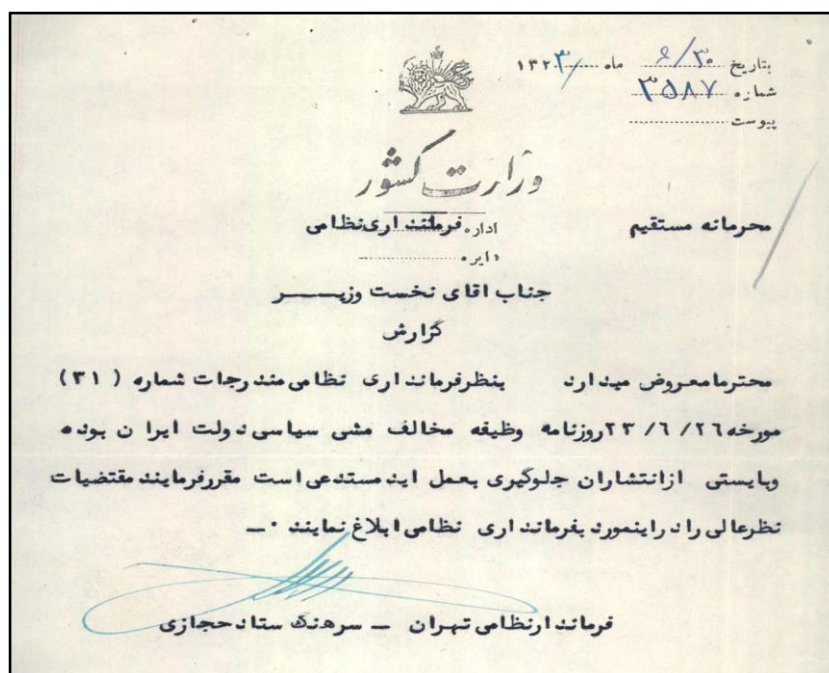 بتاریخ ۶/۳۰ ماه ۱۳۲۳
شماره ۳۵۸۷
پیوست
وزارت کشور
محرمانه مستقیم
اداره فرمانداری نظامی
دایره
جناب اقای نخست وزیــــر
گزارش
محترما معروض میدارد بنظر فرمانداری نظامی مندرجات شماره (۳۱)
مورخه ۲۳/۶/۲۶ روزنامه وظیفه مخالف مشی سیاسی دولت ایران بوده
وبایستی از انتشاران جلوگیری بعمل اید مستدعی است مقرر فرمایند مقتضیات
نظر عالی را در اینمورد بفرمانداری نظامی ابلاغ نمایند ۰ــ
فرماندار نظامی تهران ــ سرهنگ ستاد حجازی